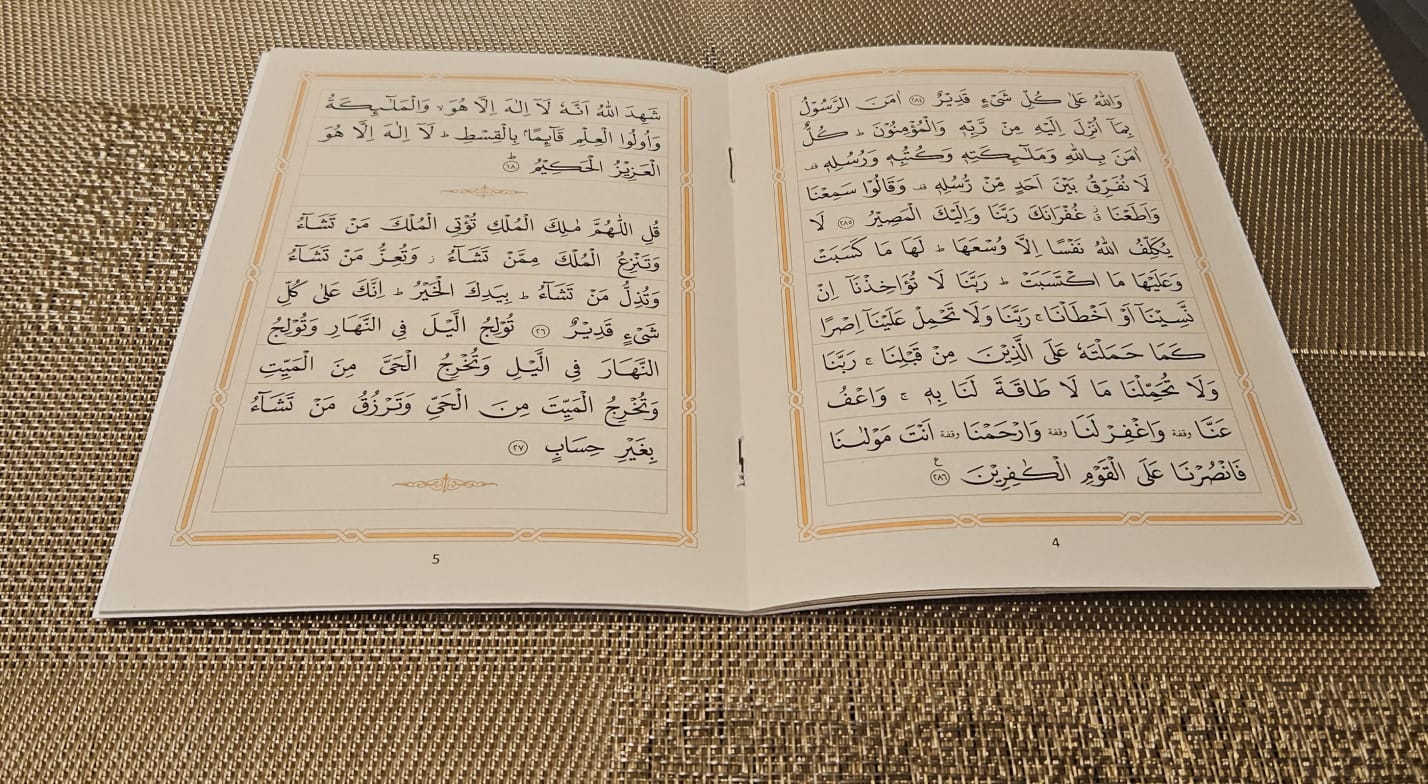 وَاللّٰهُ عَلٰى كُلِّ شَىْءٍ قَدِيْرٌ ﴿٢٨٤﴾ اٰمَنَ الرَّسُوْلُ
بِمَاۤ اُنْزِلَ اِلَيْهِ مِنْ رَّبِّهٖ وَالْمُؤْمِنُوْنَ ؕ كُلٌّ
اٰمَنَ بِاللّٰهِ وَمَلٰٓئِكَتِهٖ وَكُتُبِهٖ وَرُسُلِهٖ قف
لَا نُفَرِّقُ بَيْنَ اَحَدٍ مِّنْ رُّسُلِهٖ قف وَقَالُوْا سَمِعْنَا
وَاَطَعْنَا ز غُفْرَانَكَ رَبَّنَا وَاِلَيْكَ الْمَصِيْرُ ﴿٢٨٥﴾ لَا
يُكَلِّفُ اللّٰهُ نَفْسًا اِلَّا وُسْعَهَا ؕ لَهَا مَا كَسَبَتْ
وَعَلَيْهَا مَا اكْتَسَبَتْ ؕ رَبَّنَا لَا تُؤَاخِذْنَاۤ اِنْ
نَّسِيْنَاۤ اَوْ اَخْطَاْنَا ۚ رَبَّنَا وَلَا تَحْمِلْ عَلَيْنَاۤ اِصْرًا
كَمَا حَمَلْتَهٗ عَلَى الَّذِيْنَ مِنْ قَبْلِنَا ۚ رَبَّنَا
وَلَا تُحَمِّلْنَا مَا لَا طَاقَةَ لَنَا بِهٖ ۚ وَاعْفُ
عَنَّا وقفة وَاغْفِرْ لَنَا وقفة وَارْحَمْنَا وقفة اَنْتَ مَوْلٰىنَا
فَانْصُرْنَا عَلَى الْقَوْمِ الْكٰفِرِيْنَ ﴿٢٨٦﴾ ع
4
شَهِدَ اللّٰهُ اَنَّهٗ لَاۤ اِلٰهَ اِلَّا هُوَ ۙ وَالْمَلٰٓئِكَةُ
وَاُولُوا الْعِلْمِ قَآئِمًاۢ بِالْقِسْطِ ؕ لَاۤ اِلٰهَ اِلَّا هُوَ
الْعَزِيْزُ الْحَكِيْمُ ؕ ﴿١٨﴾
قُلِ اللّٰهُمَّ مٰلِكَ الْمُلْكِ تُؤْتِى الْمُلْكَ مَنْ تَشَآءُ
وَتَنْزِعُ الْمُلْكَ مِمَّنْ تَشَآءُ ز وَتُعِزُّ مَنْ تَشَآءُ
وَتُذِلُّ مَنْ تَشَآءُ ؕ بِيَدِكَ الْخَيْرُ ؕ اِنَّكَ عَلٰى كُلِّ
شَىْءٍ قَدِيْرٌ ﴿٢٦﴾ تُوْلِجُ الَّيْلَ فِى النَّهَارِ وَتُوْلِجُ
النَّهَارَ فِى الَّيْلِ وَتُخْرِجُ الْحَىَّ مِنَ الْمَيِّتِ
وَتُخْرِجُ الْمَيِّتَ مِنَ الْحَىِّ وَتَرْزُقُ مَنْ تَشَآءُ
بِغَيْرِ حِسَابٍ ﴿٢٧﴾
5